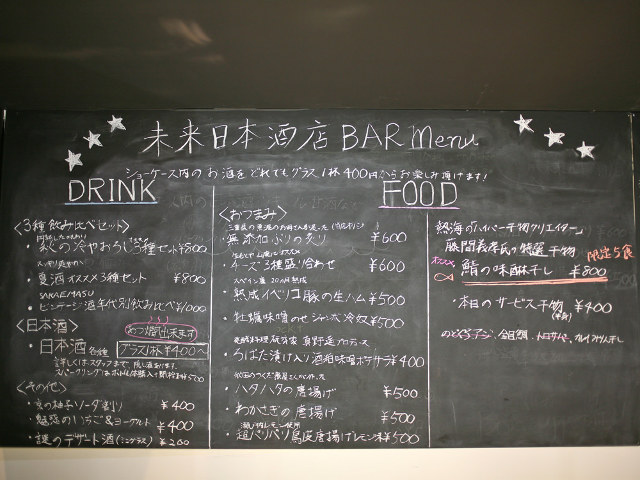 未来日本酒店 BAR Menu
ショーケース内の お酒をどれでもグラス1杯400円からお楽しみ頂けます!
DRINK
〈3種飲み比べセット〉
・秋の冷やおろし3種セット¥800
・夏酒オススメ3種セット ¥800
SAKAEMASU
・ビンテージ酒年代別飲み比べ¥1000
〈日本酒〉
あつ燗出来ます
・日本酒 各種 グラス1杯¥400~
詳しくはスタッフまで、隠し酒あります。
〈その他〉
・柚子ソーダ割り ¥400
・魅惑のいちご&ヨーグルト ¥400
・謎のデザート酒(ミニグラス) ¥200
FOOD
〈おつまみ〉
・無添加ぶりの炙り ¥600
・チーズ3種盛り合わせ ¥600
スペイン産 20ヵ月熟成
・熟成イベリコ豚の生ハム ¥500
・牡蠣味噌のせ 冷奴 ¥500
発酵料理研究家 真野遥プロデュース
・ろばた漬け入り酒粕味噌ポテサラ¥400
・ハタハタの唐揚げ ¥500
・わかさぎの唐揚げ ¥500
瀬戸内レモン使用
・超パリパリ鳥皮唐揚げレモン味¥500
熱海の「ハイパー干物クリエイター」
藤間義孝氏の特選干物
限定5食
オススメ 鯖の味醂干し ¥800
・本日のサービス干物 ¥400
のどぐろ、金目鯛、